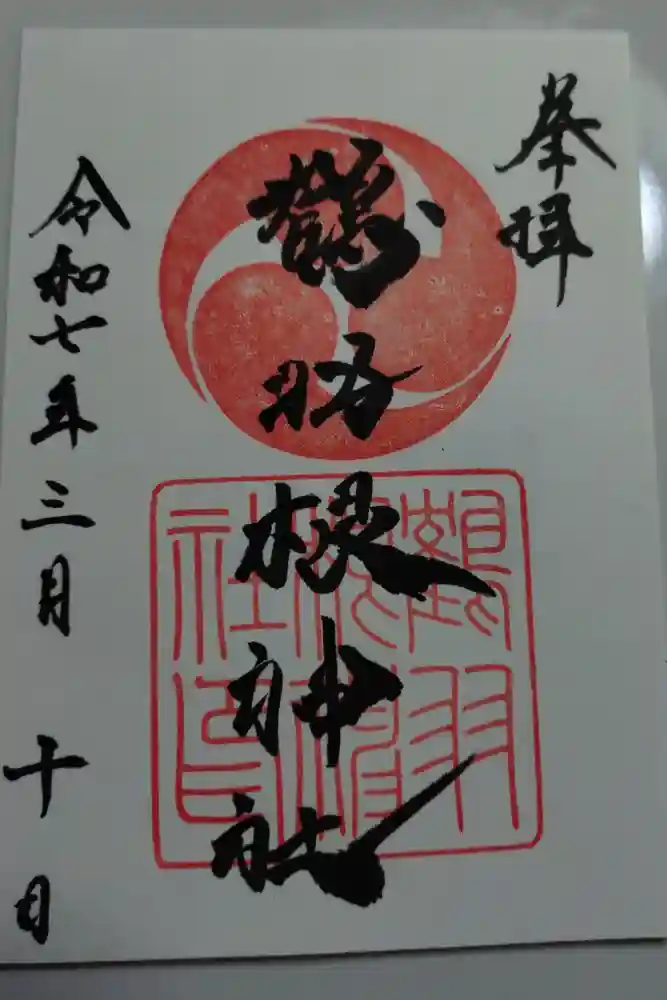 奉拝
鶴羽根神社
令和七年三月十日
鶴羽根神社印